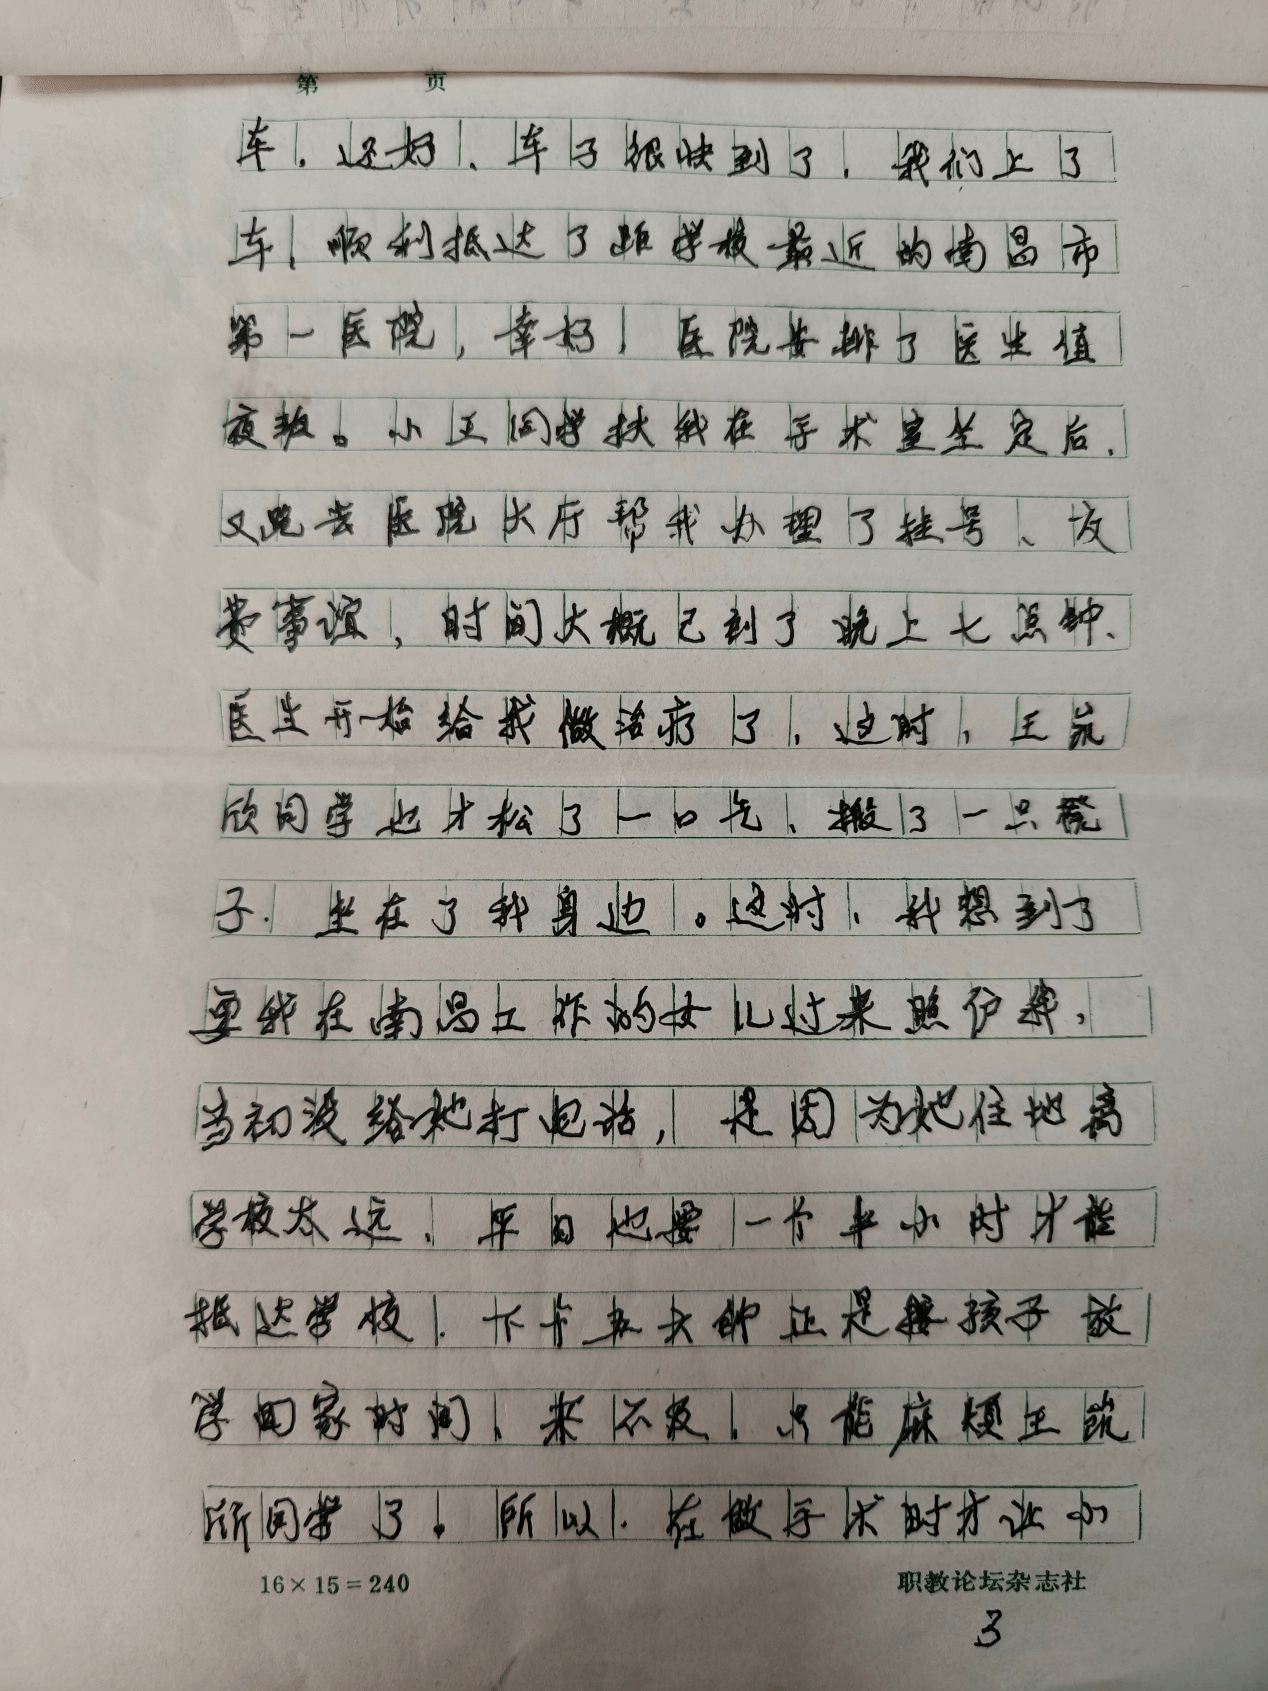 第 页
车，还好，车子很快到了，我们上了
车，顺利抵达了距学校最近的南昌市
第一医院，幸好，医院安排了医生值
夜班。小王同学扶我在手术室坐定后，
又跑去医院大厅帮我办理了挂号、交
费事谊，时间大概已到了晚上七点钟、
医生开始给我做治疗了，这时，王
欣同学也才松了一口气，搬了一只凳
子，坐在了我身边。这时，我想到了
要我在南昌工作的女儿过来照护我，
当初没给她打电话，是因为她住地离
学校太远，平日也要一个半小时才能
抵达学校，下午五六时正是接孩子放
学回家时间，来不及，只能麻烦王
欣同学了。所以，在做手术时才让小
16×15=240 职教论坛杂志社
3